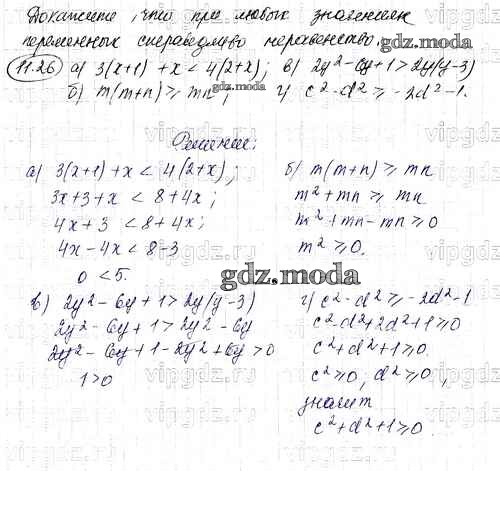 Докажите, что при любых значениях
переменных справедливо неравенство.
gdz.moda
11.26 а) 3(x+1)+x<4(2+x); в) 2y²-6y+1>2y(y-3)
б) m(m+n)≥mn; г) c²-d²≥-2d²-1.
Решение:
а) 3(x+1)+x<4(2+x);
3x+3+x<8+4x;
4x+3<8+4x;
4x-4x<8-3
0<5.
б) m(m+n)≥mn
m²+mn≥mn
m²+mn-mn≥0
m²≥0.
gdz.moda
в) 2y²-6y+1>2y(y-3)
2y²-6y+1>2y²-6y
2y²-6y+1-2y²+6y>0
1>0
г) c²-d²≥-2d²-1
c²-d²+2d²+1≥0
c²+d²+1≥0.
c²≥0, d²≥0,
значит
c²+d²+1≥0.
gdz.moda